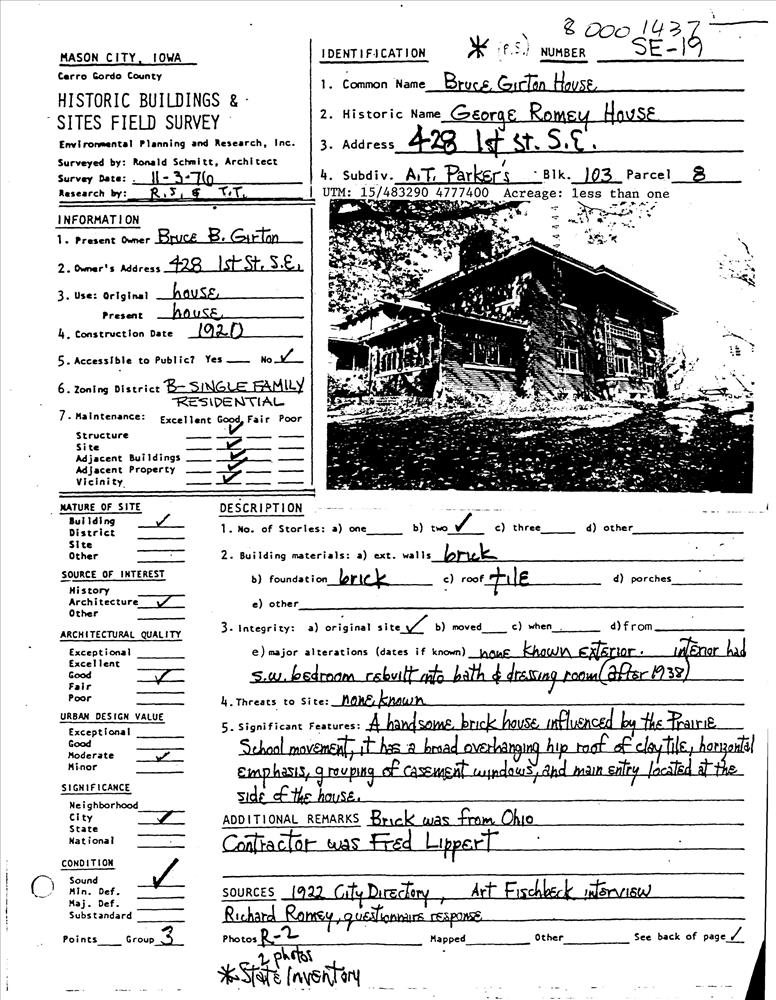 8 000 1437
MASON CITY, IOWA
Cerro Gordo County
HISTORIC BUILDINGS &
SITES FIELD SURVEY
Environmental Planning and Research, Inc.
Surveyed by: Ronald Schmitt, Architect
Survey Date: 11-3-76
Research by: R.S. & T.T.
IDENTIFICATION * (P.S.) NUMBER SE-19
1. Common Name Bruce Girton House
2. Historic Name George Romey House
3. Address 428 1st St. S.E.
4. Subdiv. A.T. Parker's Blk. 103 Parcel 8
UTM: 15/483290 4777400 Acreage: less than one
INFORMATION
1. Present Owner Bruce B. Girton
2. Owner's Address 428 1st St. S.E.
3. Use: Original house
Present house
4. Construction Date 1920
5. Accessible to Public? Yes No ✓
6. Zoning District B-SINGLE FAMILY
RESIDENTIAL
7. Maintenance: Excellent Good Fair Poor
Structure ✓
Site ✓
Adjacent Buildings ✓
Adjacent Property ✓
Vicinity ✓
NATURE OF SITE
Building ✓
District
Site
Other
SOURCE OF INTEREST
History
Architecture ✓
Other
ARCHITECTURAL QUALITY
Exceptional
Excellent
Good ✓
Fair
Poor
URBAN DESIGN VALUE
Exceptional
Good
Moderate ✓
Minor
SIGNIFICANCE
Neighborhood
City ✓
State
National
CONDITION
Sound ✓
Min. Def.
Maj. Def.
Substandard
Points Group 3
DESCRIPTION
1. No. of Stories: a) one b) two ✓ c) three d) other
2. Building materials: a) ext. walls brick
b) foundation brick c) roof tile d) porches
e) other
3. Integrity: a) original site ✓ b) moved c) when d) from
e) major alterations (dates if known) none known exterior. interior had
s.w. bedroom rebuilt into bath & dressing room (after 1938)
4. Threats to Site: none known
5. Significant Features: A handsome brick house influenced by the Prairie
School movement, it has a broad overhanging hip roof of clay tile, horizontal
emphasis, grouping of casement windows, and main entry located at the
side of the house.
ADDITIONAL REMARKS Brick was from Ohio
Contractor was Fred Lippert
SOURCES 1922 City Directory, Art Fischbeck interview
Richard Romey, questionnaire response
Photos R-2 Mapped Other See back of page ✓
2 photos
* State Inventory